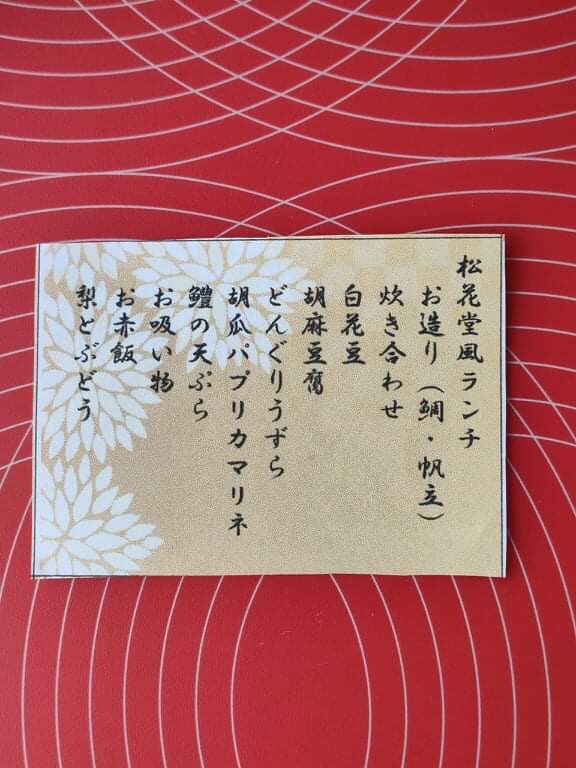 松花堂風ランチ
お造り（鯛・帆立）
炊き合わせ
白花豆
胡麻豆腐
どんぐりうずら
胡瓜パプリカマリネ
鱧の天ぷら
お吸い物
お赤飯
梨とぶどう